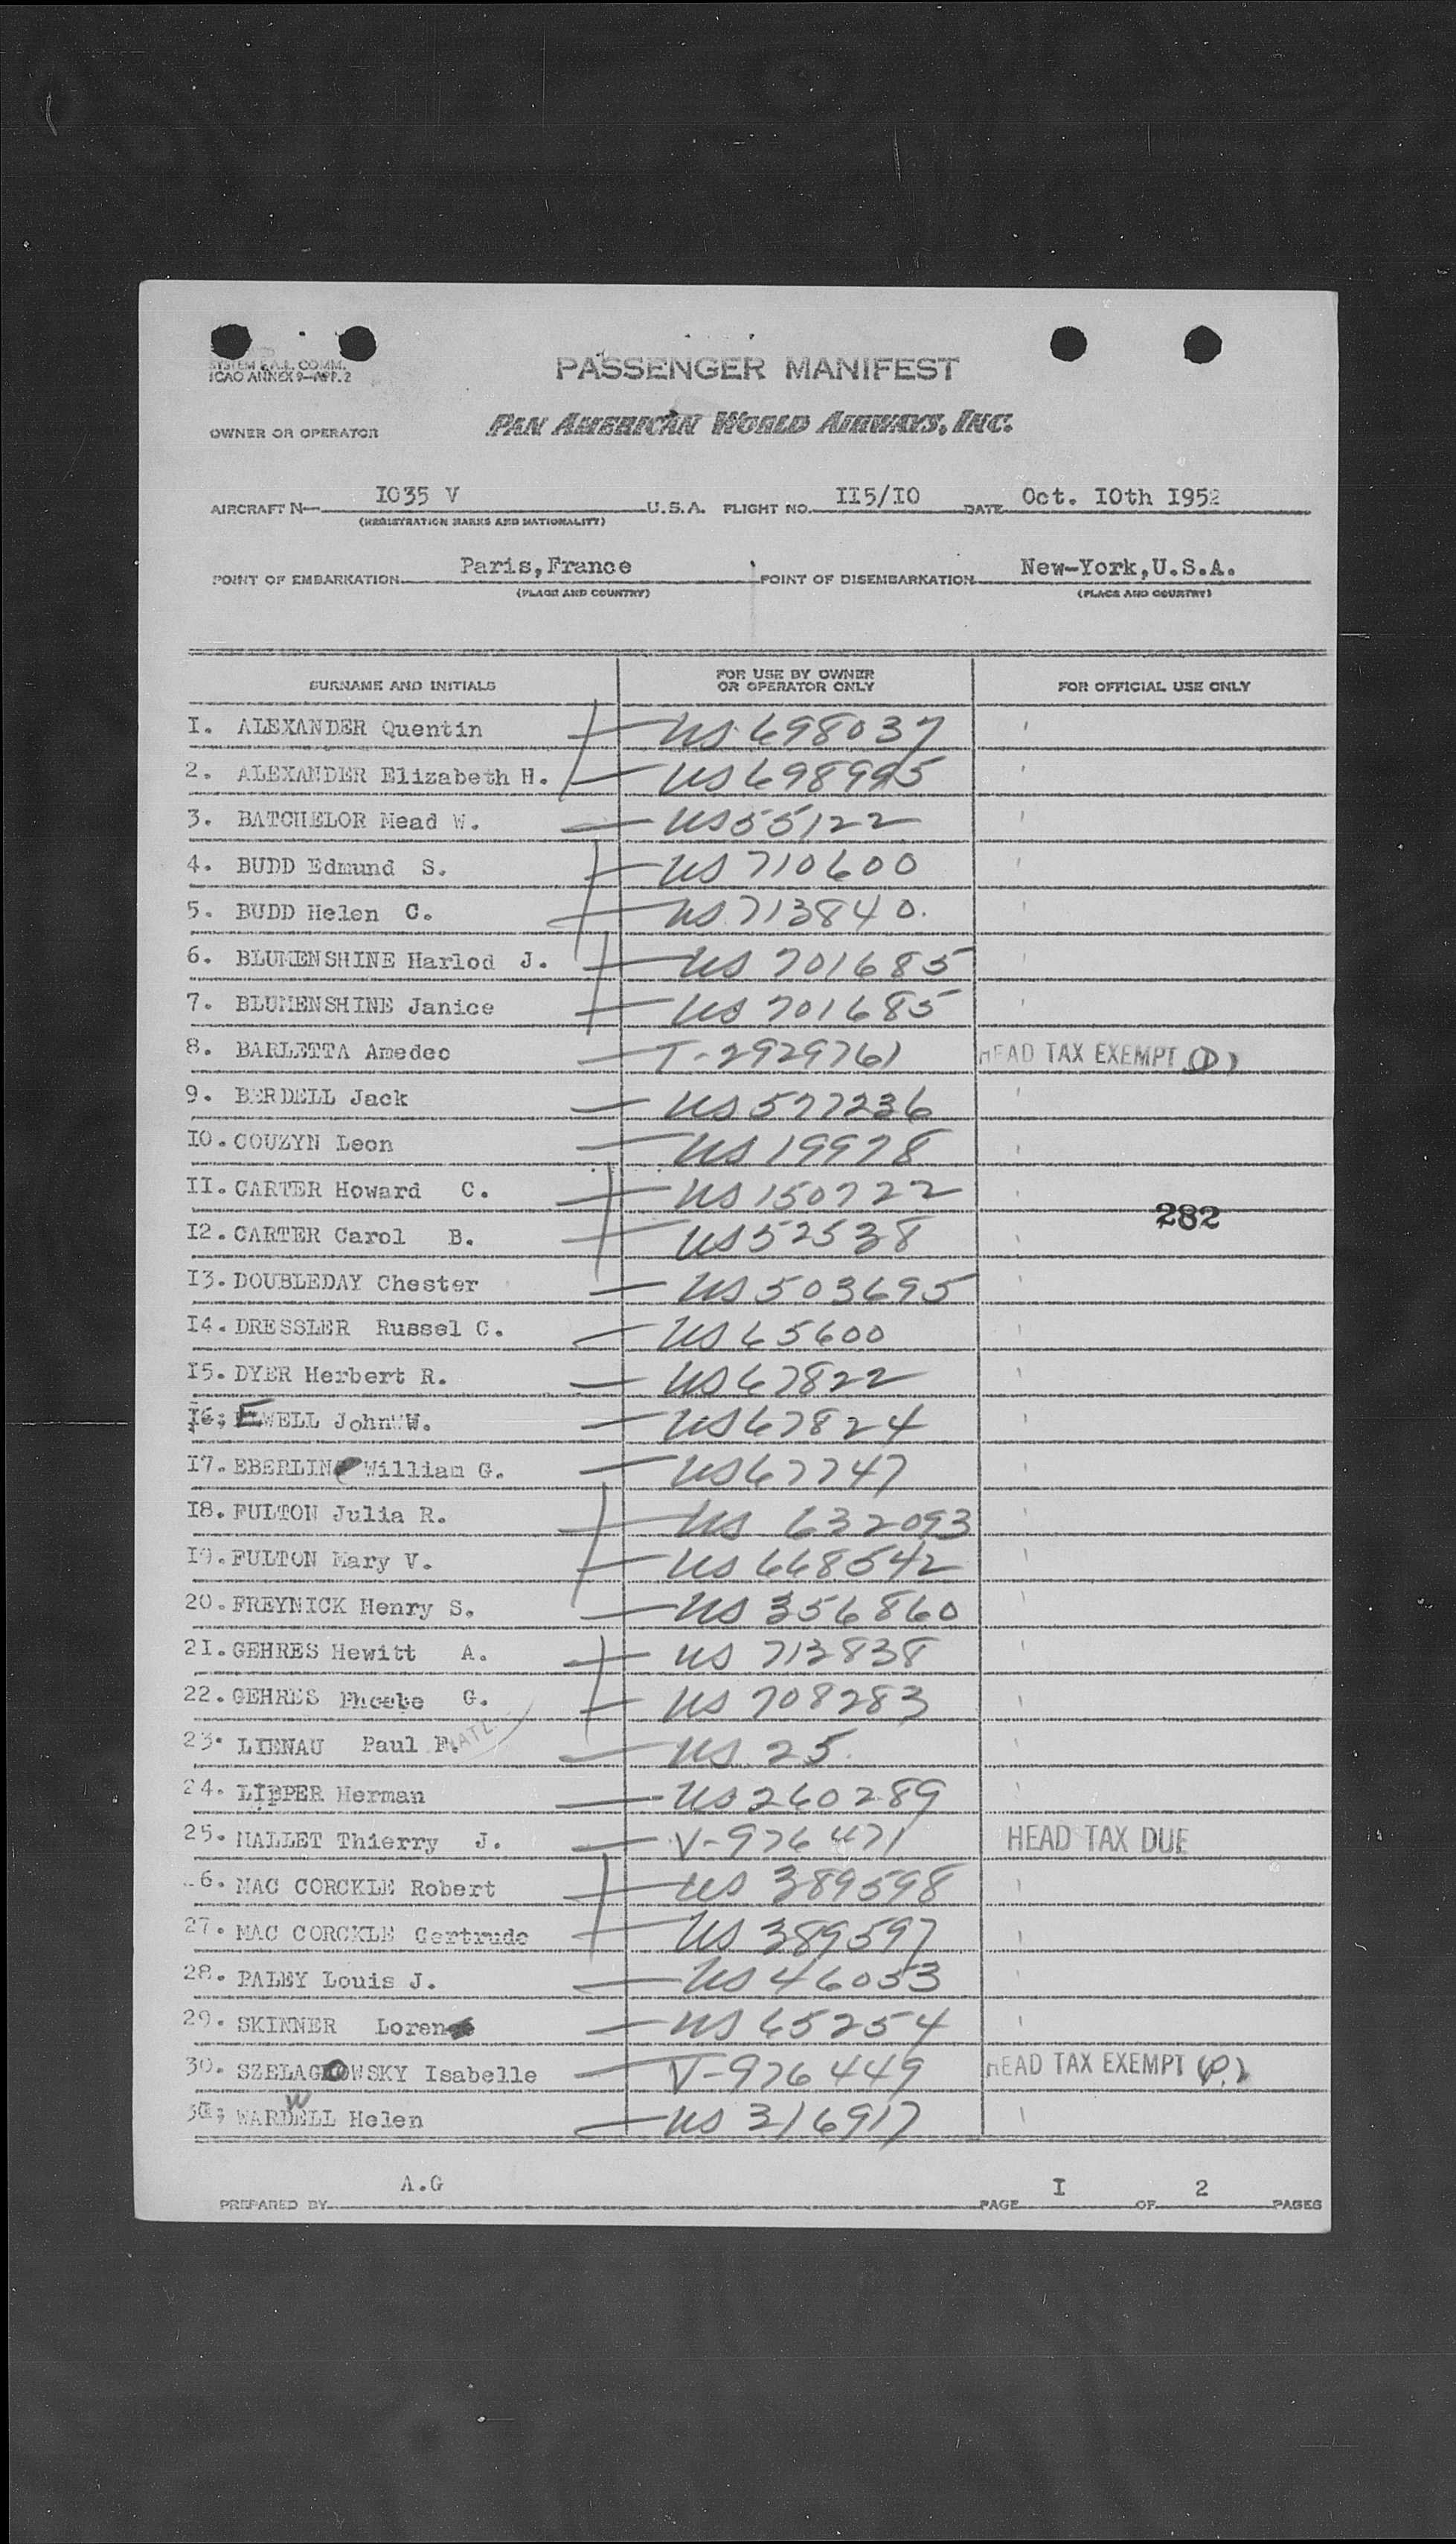 SYSTEM F.A.L. COMM.
ICAO ANNEX 9—APP. 2
PASSENGER MANIFEST
OWNER OR OPERATOR PAN AMERICAN WORLD AIRWAYS, INC.
AIRCRAFT N— 1035 V U.S.A. FLIGHT NO. II5/IO DATE Oct. IOth I952
(REGISTRATION MARKS AND NATIONALITY)
POINT OF EMBARKATION Paris,France POINT OF DISEMBARKATION New-York,U.S.A.
(PLACE AND COUNTRY) (PLACE AND COUNTRY)
SURNAME AND INITIALS FOR USE BY OWNER OR OPERATOR ONLY FOR OFFICIAL USE ONLY
I. ALEXANDER Quentin US 698037
2. ALEXANDER Elizabeth H. US 698995
3. BATCHELOR Mead W. US 55122
4. BUDD Edmund S. US 710600
5. BUDD Helen C. US 713840.
6. BLUMENSHINE Harlod J. US 701685
7. BLUMENSHINE Janice US 701685
8. BARLETTA Amedeo T-2929761 HEAD TAX EXEMPT (D)
9. BERDELL Jack US 577236
IO. COUZYN Leon US 19978
II. CARTER Howard C. US 150722
282
I2. CARTER Carol B. US 52538
I3. DOUBLEDAY Chester US 503695
I4. DRESSLER Russel C. US 65600
I5. DYER Herbert R. US 67822
I6; EWELL John W. US 67824
I7. EBERLIN William G. US 67747
I8. FULTON Julia R. US 632093
I9. FULTON Mary V. US 668542
20. FREYNICK Henry S. US 356860
2I. GEHRES Hewitt A. US 713838
22. GEHRES Phoebe G. US 708283
23. LIENAU Paul F. NATZ US 25
24. LIPPER Herman US 260289
25. MALLET Thierry J. V-976471 HEAD TAX DUE
26. MAC CORCKLE Robert US 389598
27. MAC CORCKLE Gertrude US 389597
28. PALEY Louis J. US 46053
29. SKINNER Loren US 65254
30. SZELAGOWSKY Isabelle V-976449 HEAD TAX EXEMPT (P.)
3I; WARWELL Helen US 316917
PREPARED BY A.G PAGE I OF 2 PAGES